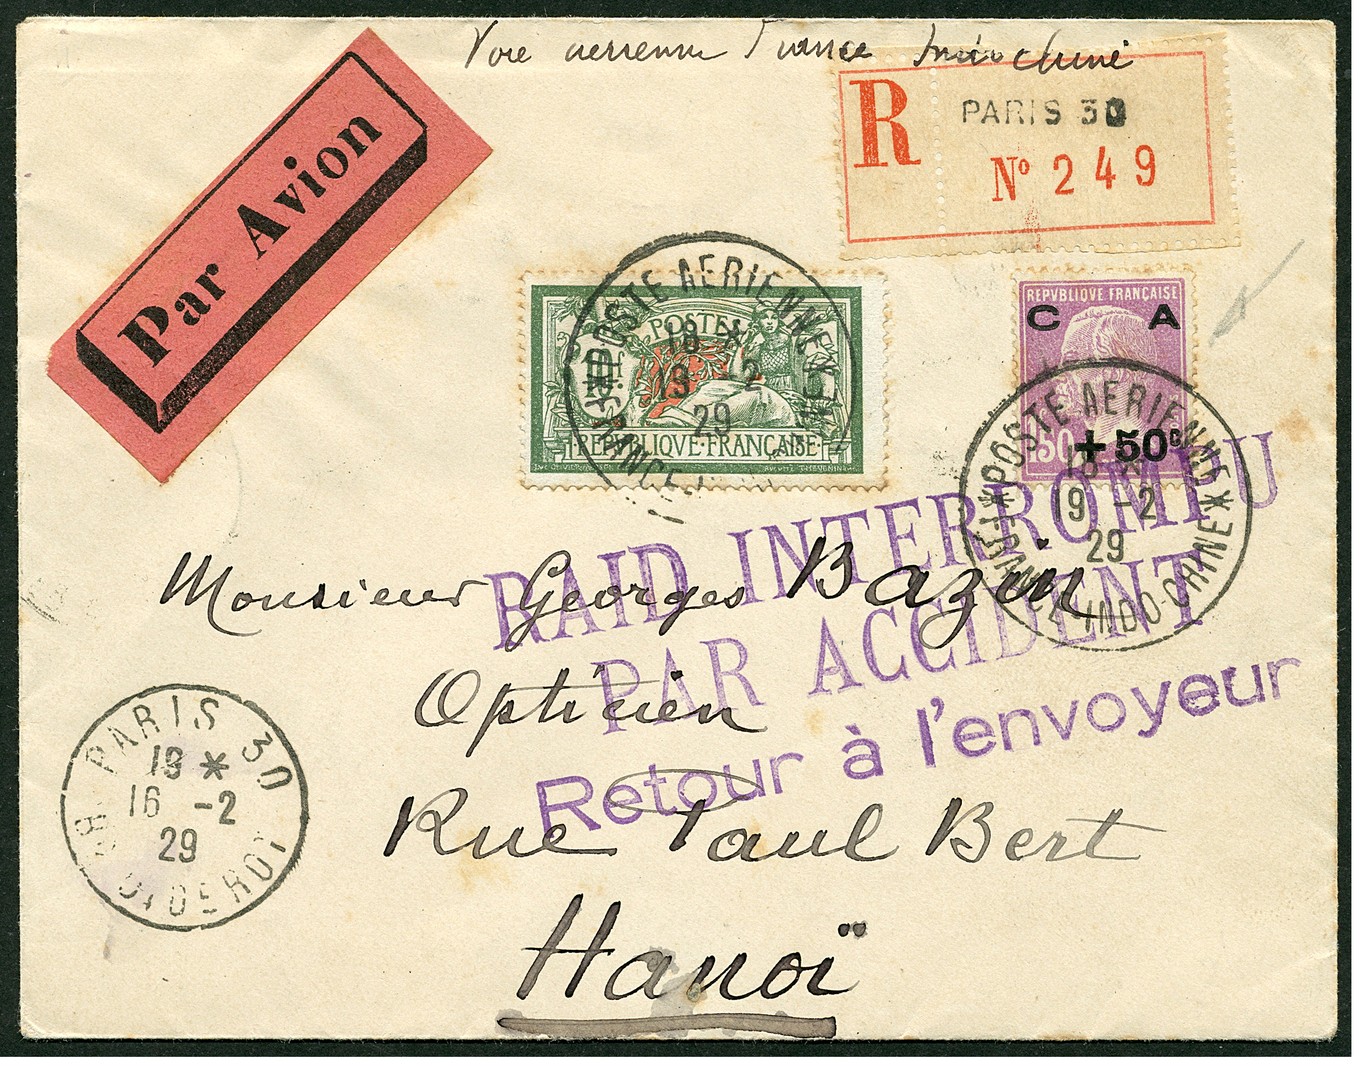 Voie aerienne France Indochine
Par Avion
R
PARIS 30
Nº 249
POSTES
REPUBLIQUE·FRANÇAISE
REPVBLIQVE FRANÇAISE
C A
1F50
+50c
*POSTE AERIENNE*
FRANCE-
18 *
19 -2
29
*POSTE AERIENNE*
FRANCE-INDO-CHINE
18 *
19 -2
29
RAID INTERROMPU
PAR ACCIDENT
Retour à l'envoyeur
Monsieur Georges Bazin
Opticien
Rue Paul Bert
Hanoï
PARIS 30
19 *
16 -2
29
DIDEROT